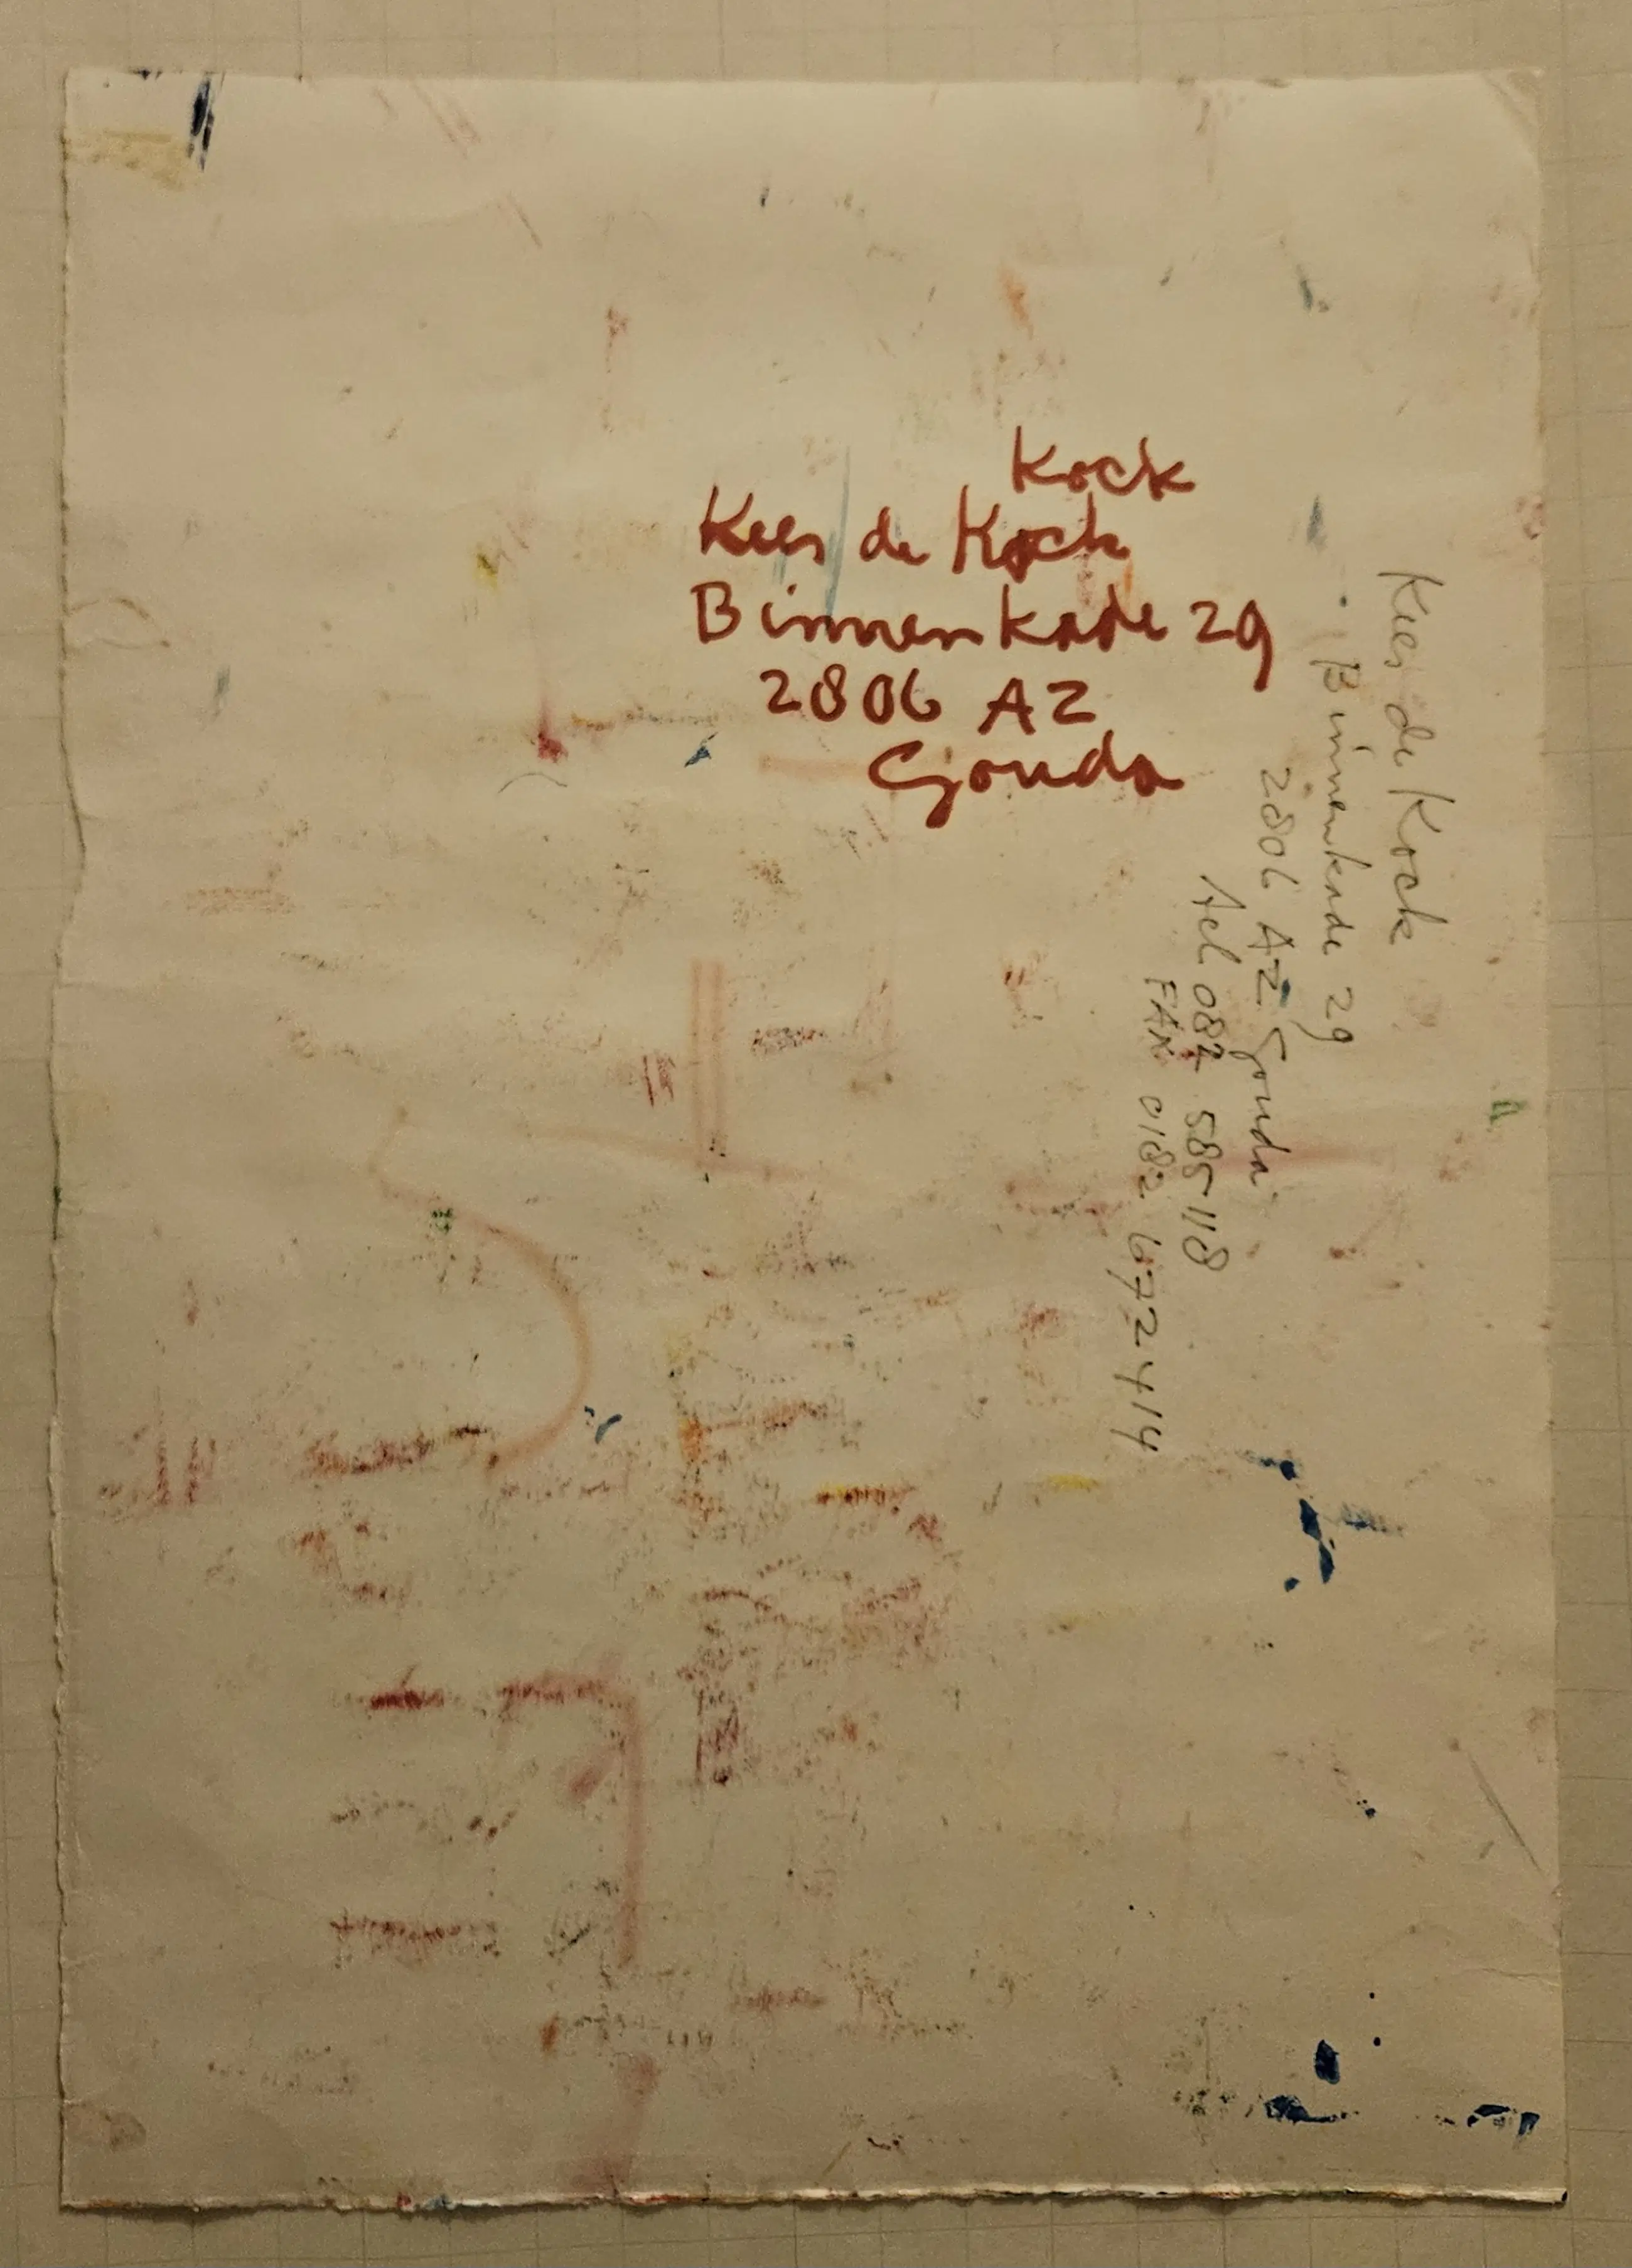 Kock
Kees de Kock
Binnenkade 29
2806 AZ
Gouda
Kees de Kock
Binnenkade 29
2806 AZ Gouda
tel 0182 585118
FAX 0182 672414